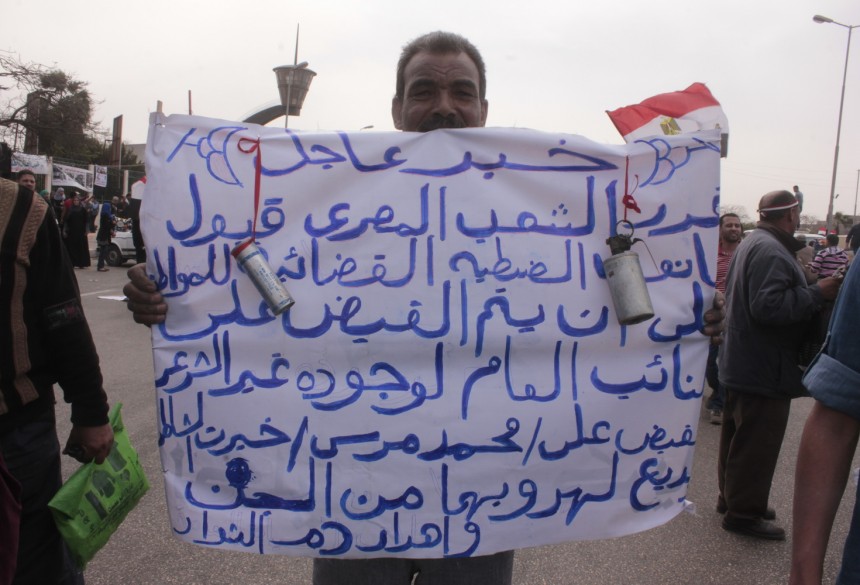 خبر عاجل
قدر الشعب المصرى قبول
مانعة الضبطيه القضائية للمواط
على ان يتم القبض على
لنائب العام لوجوده غير الشرعى
لقبض على / محمد مرسى / خيرت الشاطر
بديع لهروبهما من السجن
واهدار دم الثوار